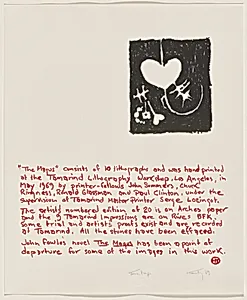 "The Magus" consists of 10 lithographs and was hand printed
at the Tamarind Lithography Workshop, Los Angeles, in
May 1969 by printer-fellows John Sommers, Chuck
Ringness, Ronald Glassman and Paul Clinton, under the
supervision of Tamarind Master Printer Serge Lozingot.
The artist's numbered edition of 20 is on Arches paper
and the 9 Tamarind Impressions are on Rives BFK.
Some trial and artist's proofs exist and are recorded
at Tamarind. All the stones have been effaced.
John Fowles novel The Magus has been a point of
departure for some of the images in this work.